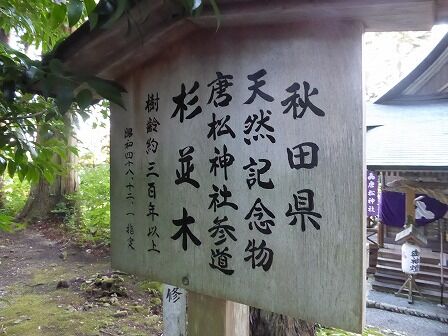 秋田県
天然記念物
唐松神社参道
杉並木
樹齢約三百年以上
昭和四十八、十二、一 指定
唐松神社
修